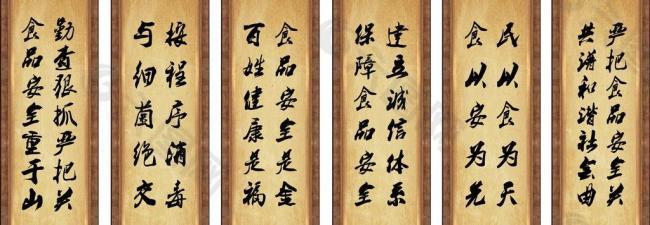 严把食品安全关
共谱和谐社会曲
民以食为天
食以安为先
建立诚信体系
保障食品安全
食品安全是金
百姓健康是福
按程序消毒
与细菌绝交
勤查狠抓严把关
食品安全重于山